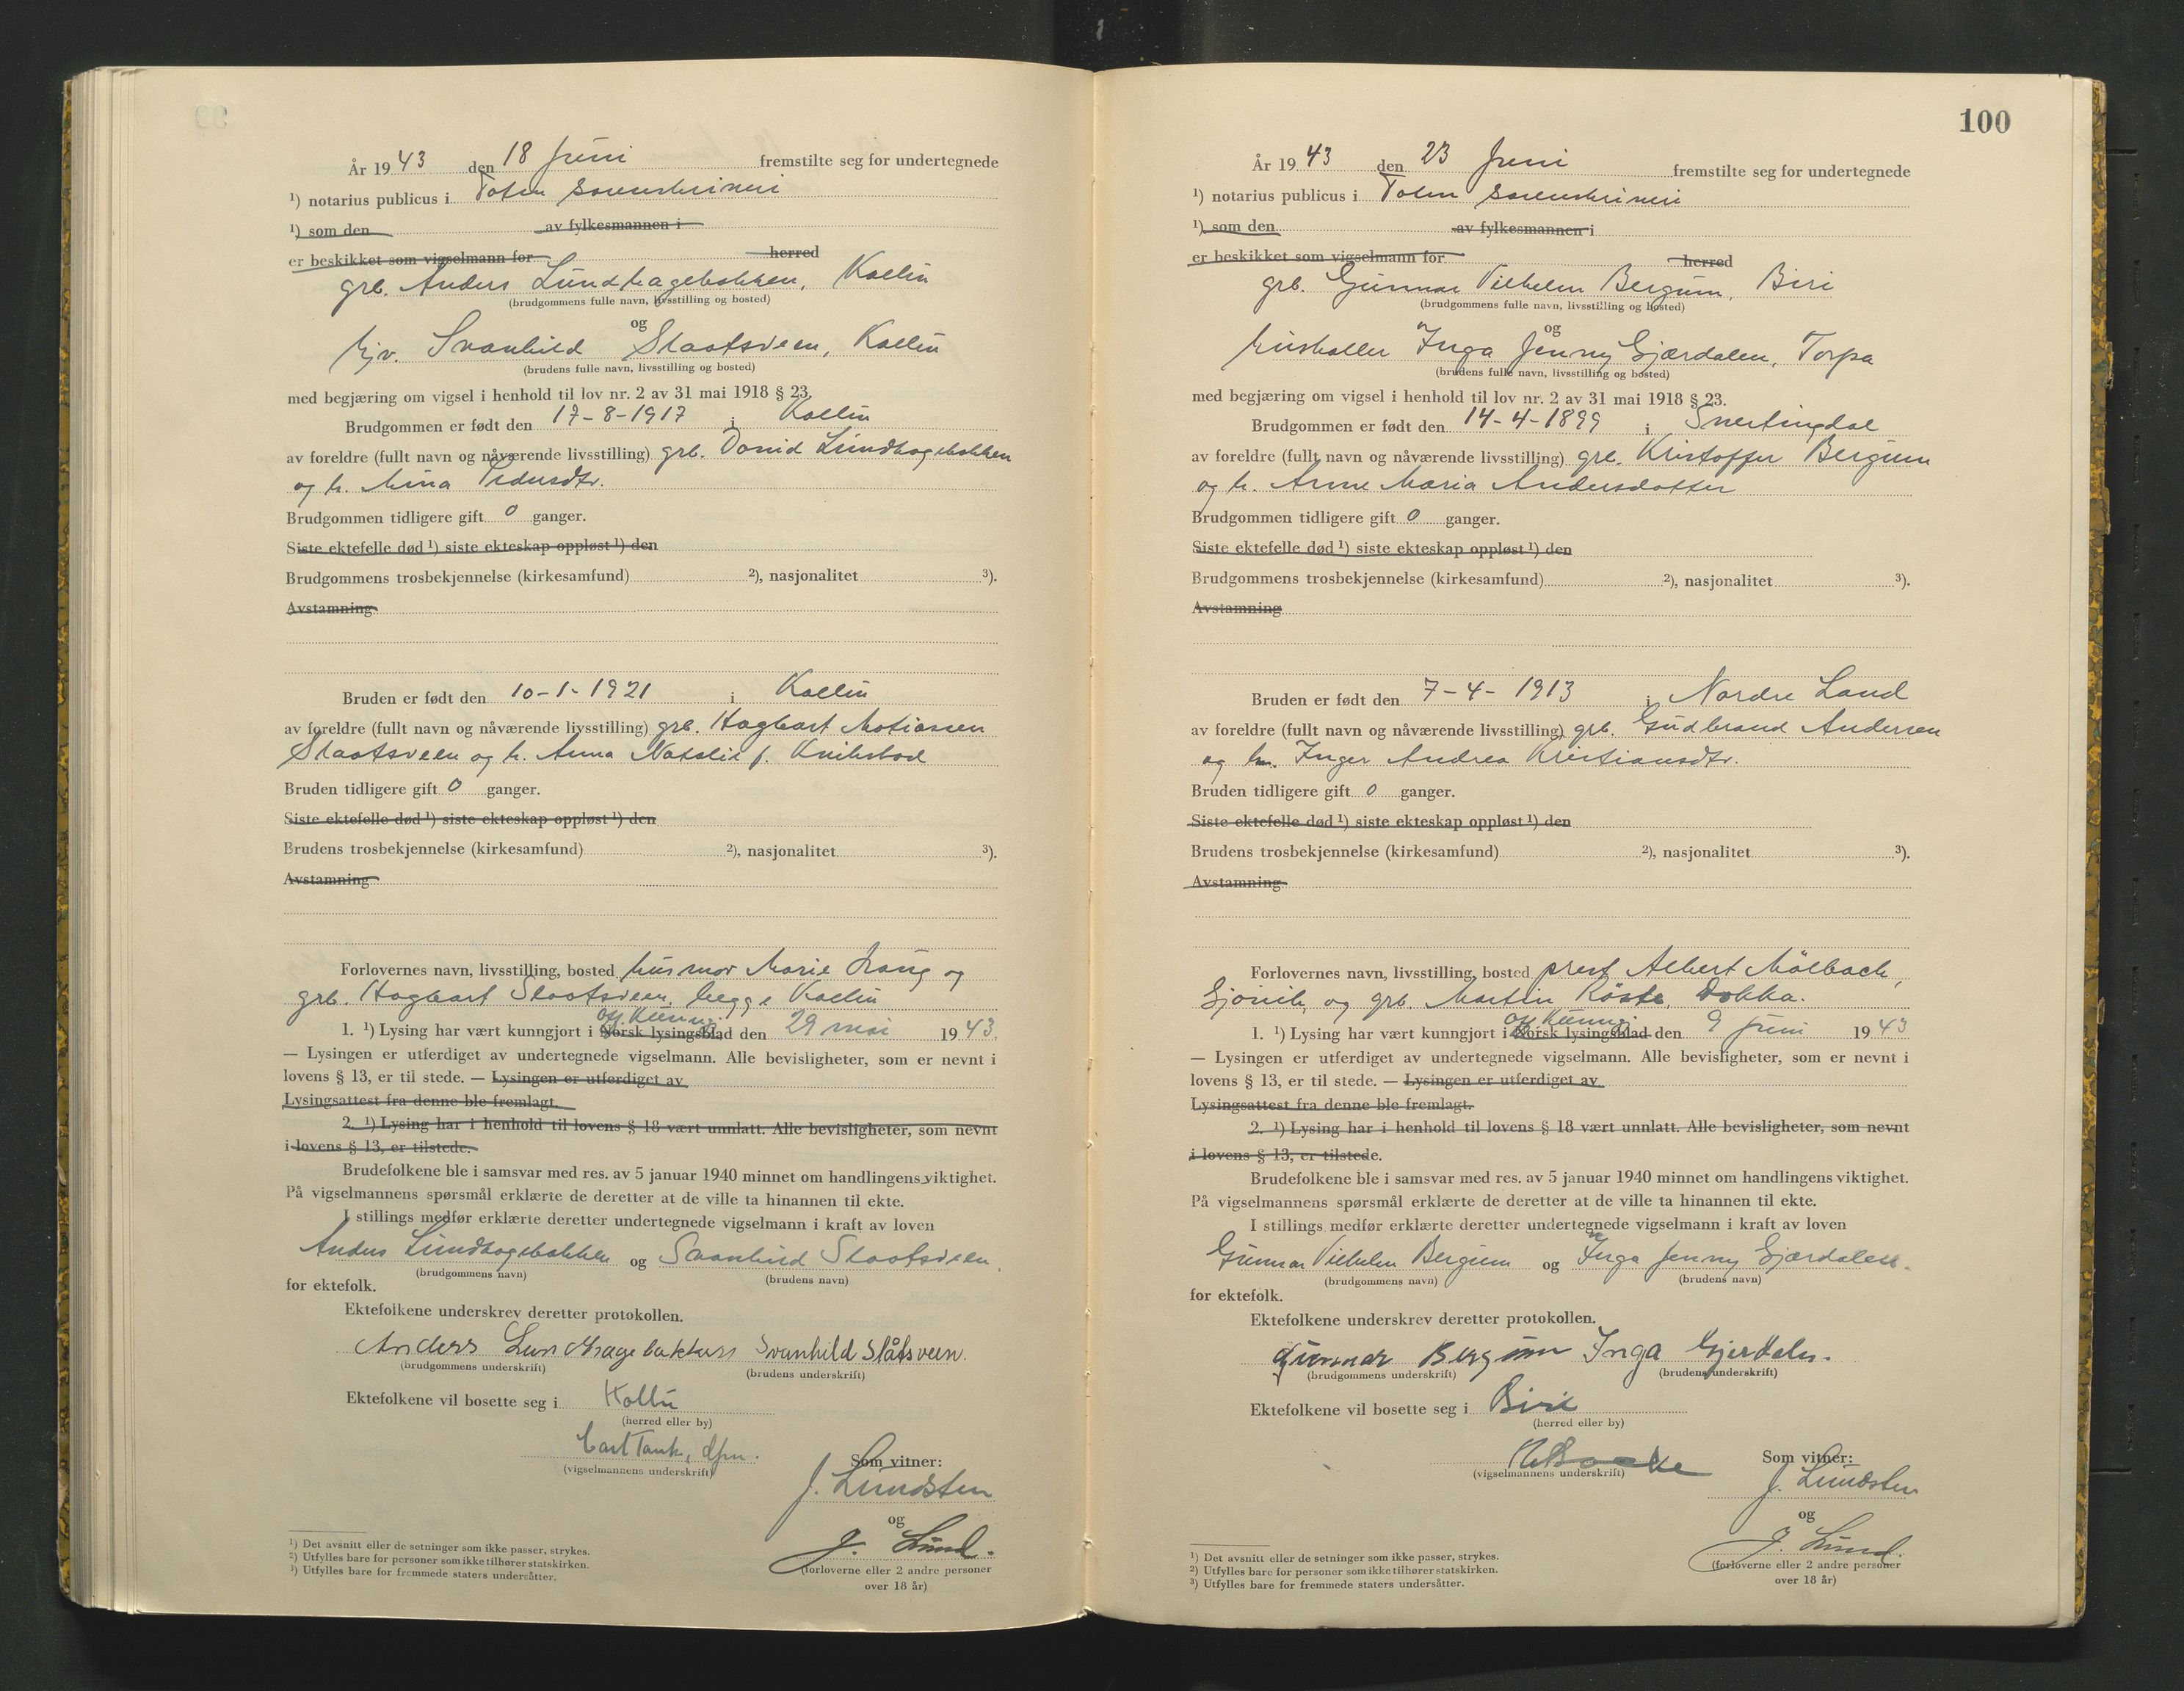 År 1943 den 18 Juni fremstilte seg for undertegnede
¹) notarius publicus i Toten sorenskriveri
¹) som den av fylkesmannen i
er beskikket som vigselmann for herred
grb. Anders Lundhagebakken, Kolbu
(brudgommens fulle navn, livsstilling og bosted)
og
hjv. Svanhild Slaatsveen, Kolbu
(brudens fulle navn, livsstilling og bosted)
med begjæring om vigsel i henhold til lov nr. 2 av 31 mai 1918 § 23.
Brudgommen er født den 17-8-1917 i Kolbu
av foreldre (fullt navn og nåværende livsstilling) grb. David Lundhagebakken
og h. Mina Pedersdtr.
Brudgommen tidligere gift 0 ganger.
Siste ektefelle død ¹) siste ekteskap oppløst ¹) den
Brudgommens trosbekjennelse (kirkesamfund) ²), nasjonalitet ³).
Avstamning
Bruden er født den 10-1-1921 i Kolbu
av foreldre (fullt navn og nåværende livsstilling) grb. Hagbart Matiassen
Slaatsveen og h. Anna Natalie f.
Bruden tidligere gift 0 ganger.
Siste ektefelle død ¹) siste ekteskap oppløst ¹) den
Brudens trosbekjennelse (kirkesamfund) ²), nasjonalitet ³).
Avstamning
Forlovernes navn, livsstilling, bosted husmor Marie Haug og
grb. Hagbart Slaatsveen, begge Kolbu
off. Kunngj.
1. ¹) Lysing har vært kunngjort i Norsk lysingsblad den 29 mai 1943.
— Lysingen er utferdiget av undertegnede vigselmann. Alle bevisligheter, som er nevnt i
lovens § 13, er til stede. — Lysingen er utferdiget av
Lysingsattest fra denne ble fremlagt.
2. ¹) Lysing har i henhold til lovens § 18 vært unnlatt. Alle bevisligheter, som nevnt
i lovens § 13, er tilstede.
Brudefolkene ble i samsvar med res. av 5 januar 1940 minnet om handlingens viktighet.
På vigselmannens spørsmål erklærte de deretter at de ville ta hinannen til ekte.
I stillings medfør erklærte deretter undertegnede vigselmann i kraft av loven
Anders Lundhagebakken og Svanhild Slaatsveen.
(brudgommens navn) (brudens navn)
for ektefolk.
Ektefolkene underskrev deretter protokollen.
Anders Lundhagebakken Svanhild Slåtsveen.
(brudgommens underskrift) (brudens underskrift)
Ektefolkene vil bosette seg i Kolbu
(herred eller by)
Carl Tank, dfm.
(vigselmannens underskrift)
Som vitner:
J. Lundsten
og
J. Lund.
(forloverne eller 2 andre personer
over 18 år)
¹) Det avsnitt eller de setninger som ikke passer, strykes.
²) Utfylles bare for personer som ikke tilhører statskirken.
³) Utfylles bare for fremmede staters undersåtter.
100
År 1943 den 23 Juni fremstilte seg for undertegnede
¹) notarius publicus i Toten sorenskriveri
¹) som den av fylkesmannen i
er beskikket som vigselmann for herred
grb. Gunnar Vilhelm Bergum, Biri
(brudgommens fulle navn, livsstilling og bosted)
og
husholder Inga Jenny Gjærdalen, Torpa
(brudens fulle navn, livsstilling og bosted)
med begjæring om vigsel i henhold til lov nr. 2 av 31 mai 1918 § 23.
Brudgommen er født den 14-4-1899 i Snertingdal
av foreldre (fullt navn og nåværende livsstilling) grb. Kristoffer Bergum
og h. Anne Maria Andersdatter
Brudgommen tidligere gift 0 ganger.
Siste ektefelle død ¹) siste ekteskap oppløst ¹) den
Brudgommens trosbekjennelse (kirkesamfund) ²), nasjonalitet ³).
Avstamning
Bruden er født den 7-4-1913 i Nordre Land
av foreldre (fullt navn og nåværende livsstilling) grb. Gudbrand Andersen
og h. Inger Andrea Kristiansdtr.
Bruden tidligere gift 0 ganger.
Siste ektefelle død ¹) siste ekteskap oppløst ¹) den
Brudens trosbekjennelse (kirkesamfund) ²), nasjonalitet ³).
Avstamning
Forlovernes navn, livsstilling, bosted prest Albert Mölbach,
Gjövik, og grb. Martin Röste, Dokka.
off. Kunngj.
1. ¹) Lysing har vært kunngjort i Norsk lysingsblad den 9 Juni 1943
— Lysingen er utferdiget av undertegnede vigselmann. Alle bevisligheter, som er nevnt i
lovens § 13, er til stede. — Lysingen er utferdiget av
Lysingsattest fra denne ble fremlagt.
2. ¹) Lysing har i henhold til lovens § 18 vært unnlatt. Alle bevisligheter, som nevnt
i lovens § 13, er tilstede.
Brudefolkene ble i samsvar med res. av 5 januar 1940 minnet om handlingens viktighet.
På vigselmannens spørsmål erklærte de deretter at de ville ta hinannen til ekte.
I stillings medfør erklærte deretter undertegnede vigselmann i kraft av loven
Gunnar Vilhelm Bergum og Inga Jenny Gjærdalen.
(brudgommens navn) (brudens navn)
for ektefolk.
Ektefolkene underskrev deretter protokollen.
Gunnar Bergum Inga Gjerdalen.
(brudgommens underskrift) (brudens underskrift)
Ektefolkene vil bosette seg i Biri
(herred eller by)
(vigselmannens underskrift)
Som vitner:
J. Lundsten
og
J. Lund.
(forloverne eller 2 andre personer
over 18 år)
¹) Det avsnitt eller de setninger som ikke passer, strykes.
²) Utfylles bare for personer som ikke tilhører statskirken.
³) Utfylles bare for fremmede staters undersåtter.